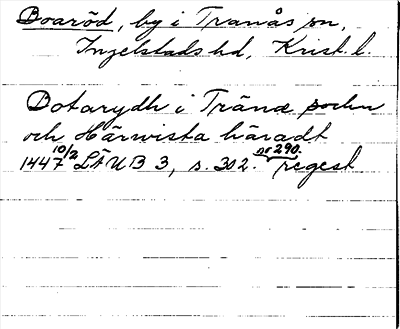 Boaröd, by i Tranås sn,
Ingelstads hd, Krist. l.
Botarydh i Tränæ sochn
och Härwista häradt
1447 10/2 LÄUB 3, s. 302. nr 290. regest